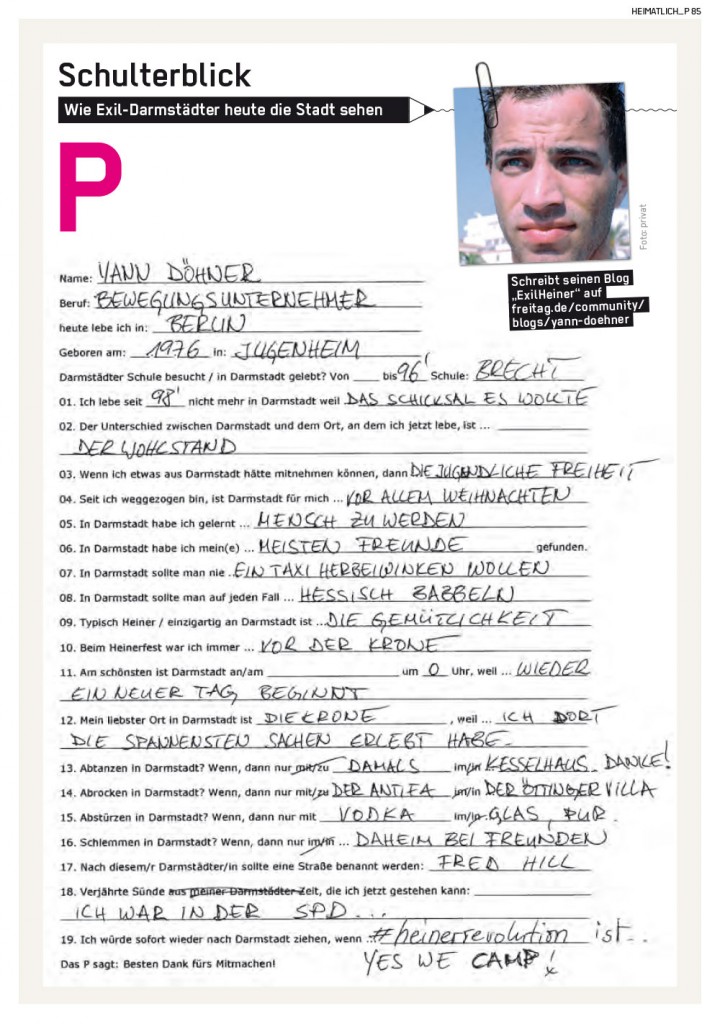 HEIMATLICH_P 85
Schulterblick
Wie Exil-Darmstädter heute die Stadt sehen
P
Foto: privat
Schreibt seinen Blog
„ExilHeiner“ auf
freitag.de/community/
blogs/yann-doehner
Name: YANN DÖHNER
Beruf: BEWEGUNGSUNTERNEHMER
heute lebe ich in: BERLIN
Geboren am: 1976 in: JUGENHEIM
Darmstädter Schule besucht / in Darmstadt gelebt? Von ____ bis 96' Schule: BRECHT
01. Ich lebe seit 98' nicht mehr in Darmstadt weil DAS SCHICKSAL ES WOLLTE
02. Der Unterschied zwischen Darmstadt und dem Ort, an dem ich jetzt lebe, ist ...
DER WOHLSTAND
03. Wenn ich etwas aus Darmstadt hätte mitnehmen können, dann DIE JUGENDLICHE FREIHEIT
04. Seit ich weggezogen bin, ist Darmstadt für mich ... VOR ALLEM WEIHNACHTEN
05. In Darmstadt habe ich gelernt ... MENSCH ZU WERDEN
06. In Darmstadt habe ich mein(e) ... MEISTEN FREUNDE gefunden.
07. In Darmstadt sollte man nie ... EIN TAXI HERBEIWINKEN WOLLEN
08. In Darmstadt sollte man auf jeden Fall ... HESSISCH BABBELN
09. Typisch Heiner / einzigartig an Darmstadt ist ... DIE GEMÜTLICHKEIT
10. Beim Heinerfest war ich immer ... VOR DER KRONE
11. Am schönsten ist Darmstadt an/am ____ um 0 Uhr, weil ... WIEDER
EIN NEUER TAG BEGINNT
12. Mein liebster Ort in Darmstadt ist DIE KRONE, weil ... ICH DORT
DIE SPANNENSTEN SACHEN ERLEBT HABE.
13. Abtanzen in Darmstadt? Wenn, dann nur mit/zu DAMALS im/in KESSELHAUS. DANKE!
14. Abrocken in Darmstadt? Wenn, dann nur mit/zu DER ANTIFA im/in DER ÖTTINGER VILLA
15. Abstürzen in Darmstadt? Wenn, dann nur mit VODKA im/in GLAS, PUR.
16. Schlemmen in Darmstadt? Wenn, dann nur im/in ... DAHEIM BEI FREUNDEN
17. Nach diesem/r Darmstädter/in sollte eine Straße benannt werden: FRED HILL
18. Verjährte Sünde aus meiner Darmstädter Zeit, die ich jetzt gestehen kann:
ICH WAR IN DER SPD...
19. Ich würde sofort wieder nach Darmstadt ziehen, wenn ... #heinerrevolution ist..
Das P sagt: Besten Dank fürs Mitmachen! YES WE CAMP!